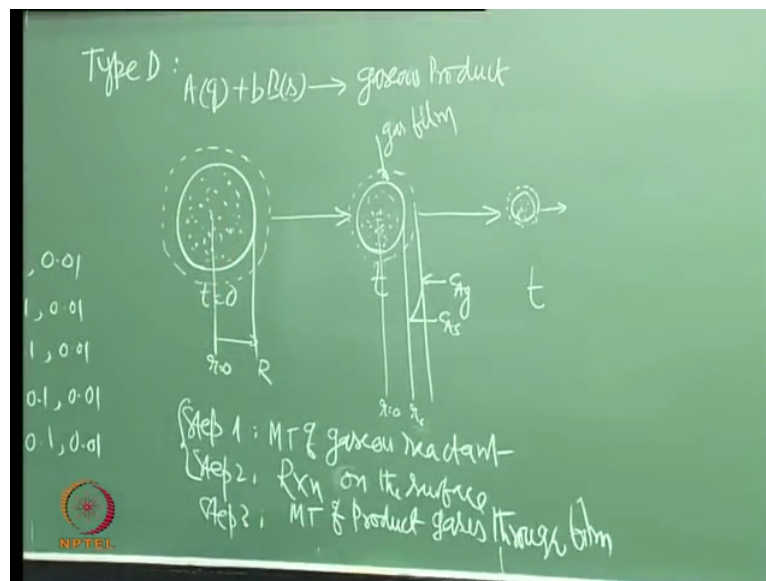 Type D :
A(g) + bB(s) → gaseous Product
gas film
, 0.01
1, 0.01
1, 0.01
0.1, 0.01
0.1, 0.01
t=0
t
t
C_Ag
C_As
r=0
R
r=0
r_c
Step 1 : MT of gaseous reactant
Step 2 : Rxn on the surface
Step 3 : MT of Product gases through film
NPTEL